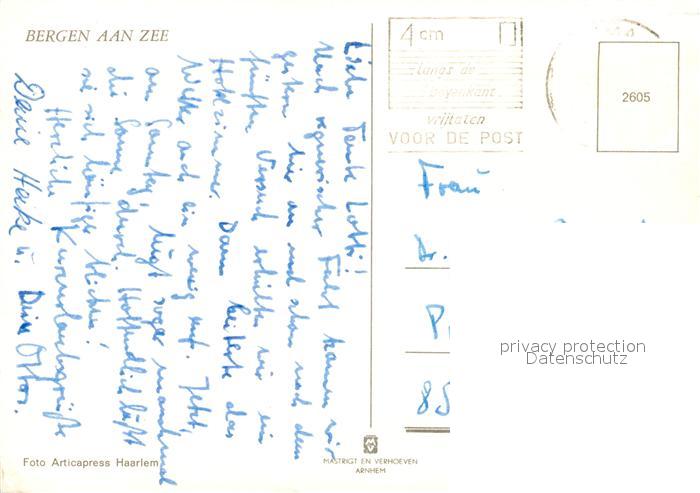 BERGEN AAN ZEE
4 cm
langs de
bovenkant
vrijlaten
VOOR DE POST
2605
Liebe Tante Lotti!
Nach regnerischer Fahrt kamen wir
gestern hier an und schon nach dem
fünften Versuch erhielten wir ein
Hotelzimmer. Dann heiterte das
Wetter auch ein wenig auf. Jetzt,
am Samstag, lugt sogar manchmal
die Sonne durch. Hoffentlich läßt
sie sich häufiger blicken!
Herzliche Kurzurlaubsgrüße
Deine Heike u. Dein Otto.
Frau
Foto Articapress Haarlem
MASTRIGT EN VERHOEVEN
ARNHEM
privacy protection
Datenschutz